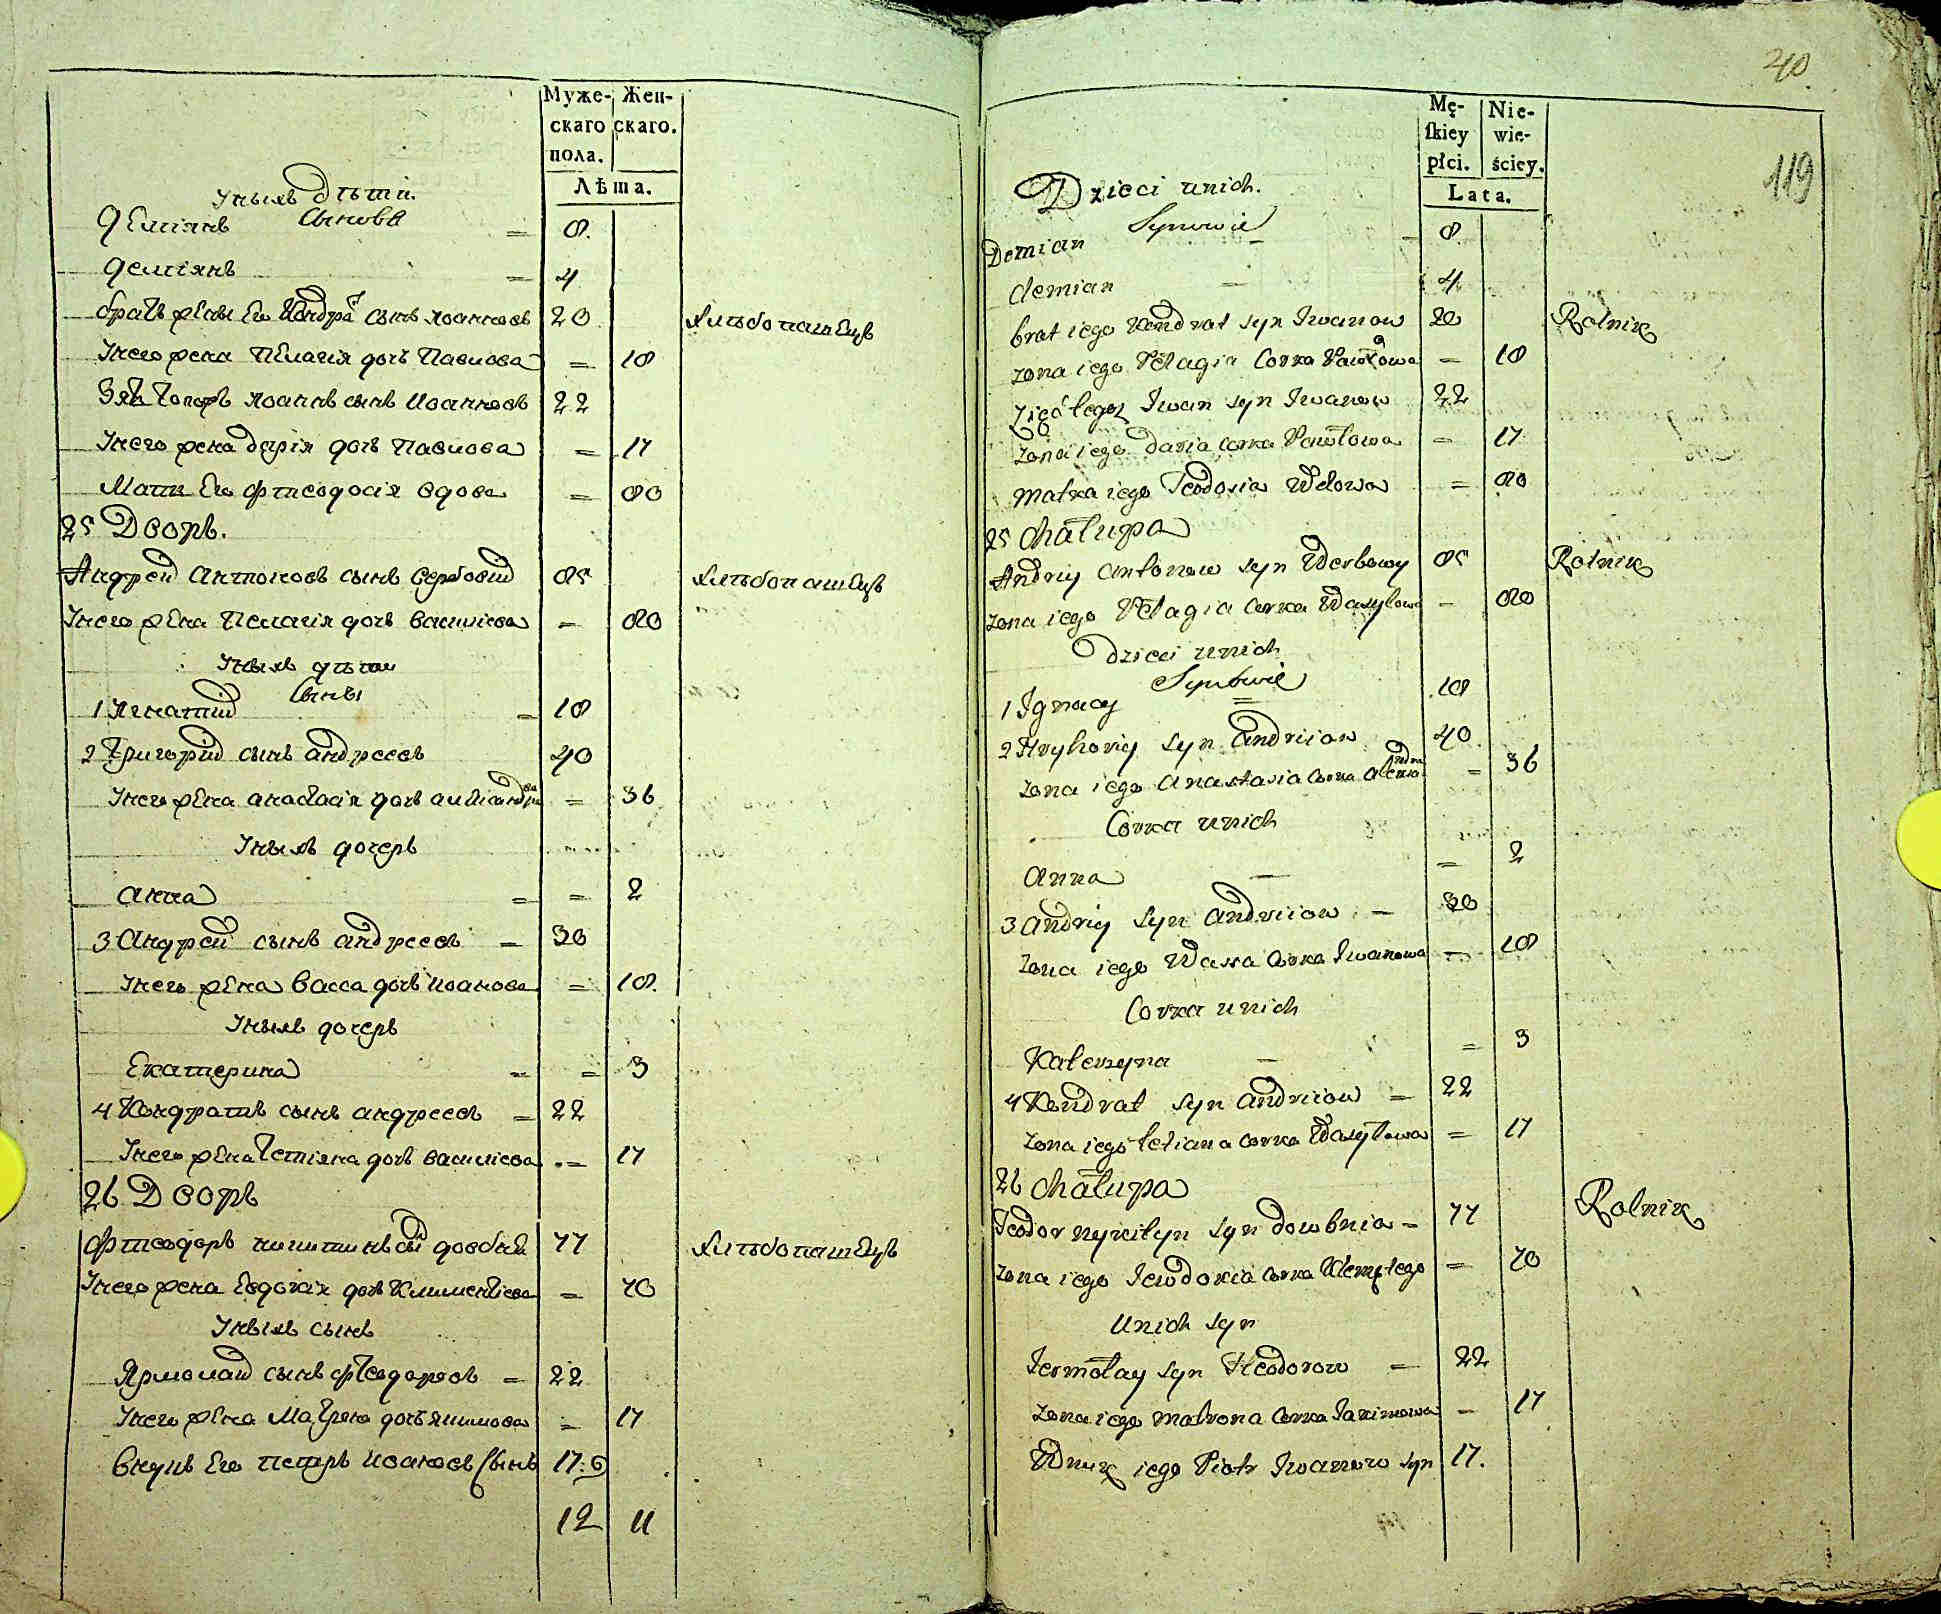 Муже- Жен-
скаго скаго.
пола.
Лѣта.
У ныхъ дѣти.
Сынове
Демiянъ = 8.
Демiянъ = 4
братъ жены его Кондра сынъ Иоанновъ 20 Хлѣбопашецъ
У него жена Пелагiя дочъ Павлова = 18
Зять Иоаннъ сынъ Иоанновъ 22
У него жена Дарiя дочъ Павлова = 17
Мати его Фтеодосiя вдова = 80
25 Дворъ.
Андрей Антоновъ сынъ Вербовий 85 Хлѣбопашецъ
У него жена Пелагiя дочъ Василиева = 80
У ныхъ дѣти
Сыны
1 Игнатий = 18
2 Григорий сынъ Андреевъ 40
У него жена Анастасiя дочъ Александрова = 36
У ныхъ дочерь
Анна = = 2
3 Андрей сынъ Андреевъ = 30
У него жена Васса дочъ Иоанова = 18.
У ныхъ дочерь
Екатерина = = 3
4 Кондратъ сынъ Андреевъ = 22
У него жена Тетiяна дочъ Василиева = 17
26 Дворъ
Фтеодоръ Никитинъ сы Довбня 77 Хлѣбопашецъ
У него жена Евдокiя дочъ Климентiева = 70
У ныхъ сынъ
Ярмолай сынъ Фтеодоровъ = 22
У него жена Матрона дочъ Якимова = 17
Внукъ его Петръ Иоановъ Сынъ 17:
12 11
40
119
Mę- Nie-
ſkiey wie-
płci. ściey.
Lata.
Dzieci unich.
Synowie
Demian 8
demian 4
brat iego Kondrat syn Iwanow 20 Rolnik
zona iego Pelagia Corka Pawłowa = 18
Zięć Iwan syn Iwanow 22
zona iego daria corka Pawłowa = 17
matka iego Teodosia Wdowa = 80
25 Chałupa
Andriy Antonow syn Werbowy 85 Rolnik
zona iego Pelagia corka Wasylowa - 80
dzieci unich
Synowie
1 Ignacy = 18
2 Hryhoriy syn Andriiow 40
zona iego Anastasia corka Alexandra = 36
Corka unich
Anna = 2
3 Andriy syn Andriiow - 30
zona iego Wassa Corka Iwanowa = 18
Corka unich
Katerzyna = 3
4 Kondrat syn Andriiow = 22
zona iego tetiana corka Wasylowa = 17
26 Chałupa
Teodor nykityn syn dowbnia - 77 Rolnik
zona iego Iewdokia corka Klemętego = 70
Unich syn
Iermołay syn Fteodorow = 22
zona iego matrona Corka Iakimowa - 17
Wnuk iego Piotr Iwanow syn 17.